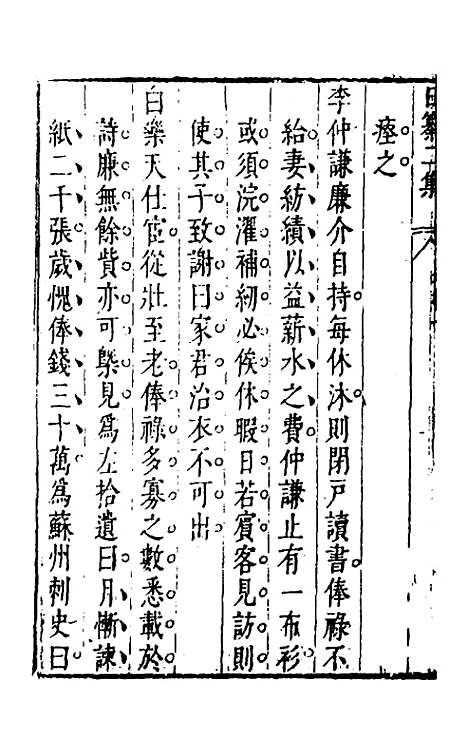 日纂二集
瘞之
李仲謙廉介自持每休沐則閉戸讀書俸祿不
給妻紡績以益薪水之費仲謙止有一布衫
或須浣濯補紉必俟休暇日若賔客見訪則
使其子致謝曰家君治衣不可出
白樂天仕宦從壯至老俸祿多寡之數悉載於
詩廉無餘貲亦可槩見爲左拾遺曰月慚諫
紙二千張歲愧俸錢三十萬爲蘇州刺史曰